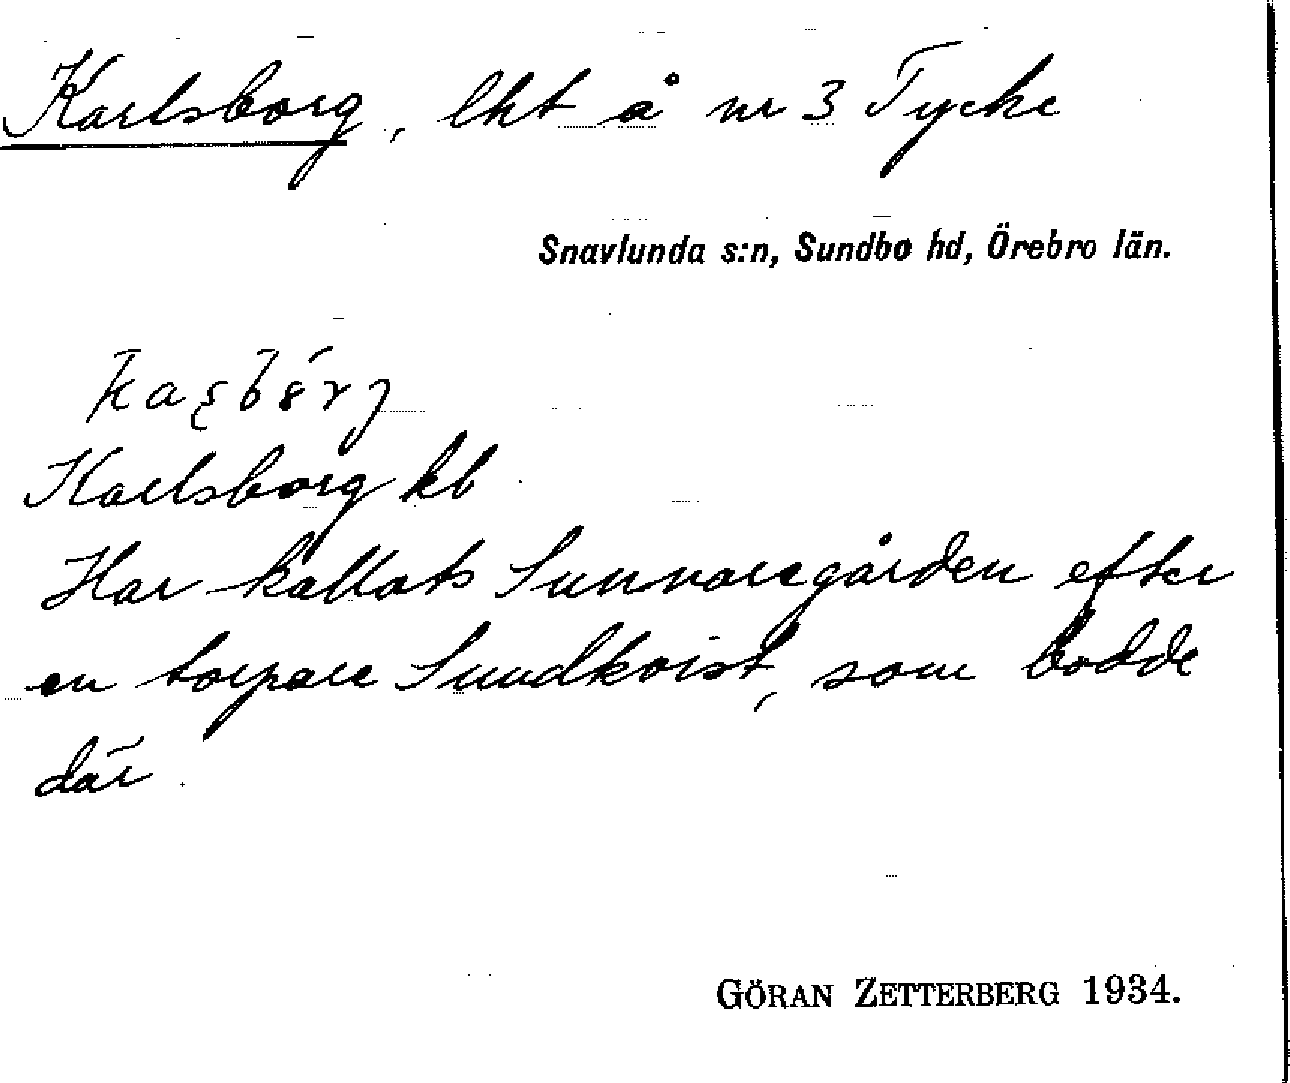 Karlsborg, lht å nr 3 Tycke
Snavlunda s:n, Sundbo hd, Örebro län.
Karlsborg kb
Har kallats Sunnaregården efter
en torpare Sundkvist, som bodde
där.
GÖRAN ZETTERBERG 1934.